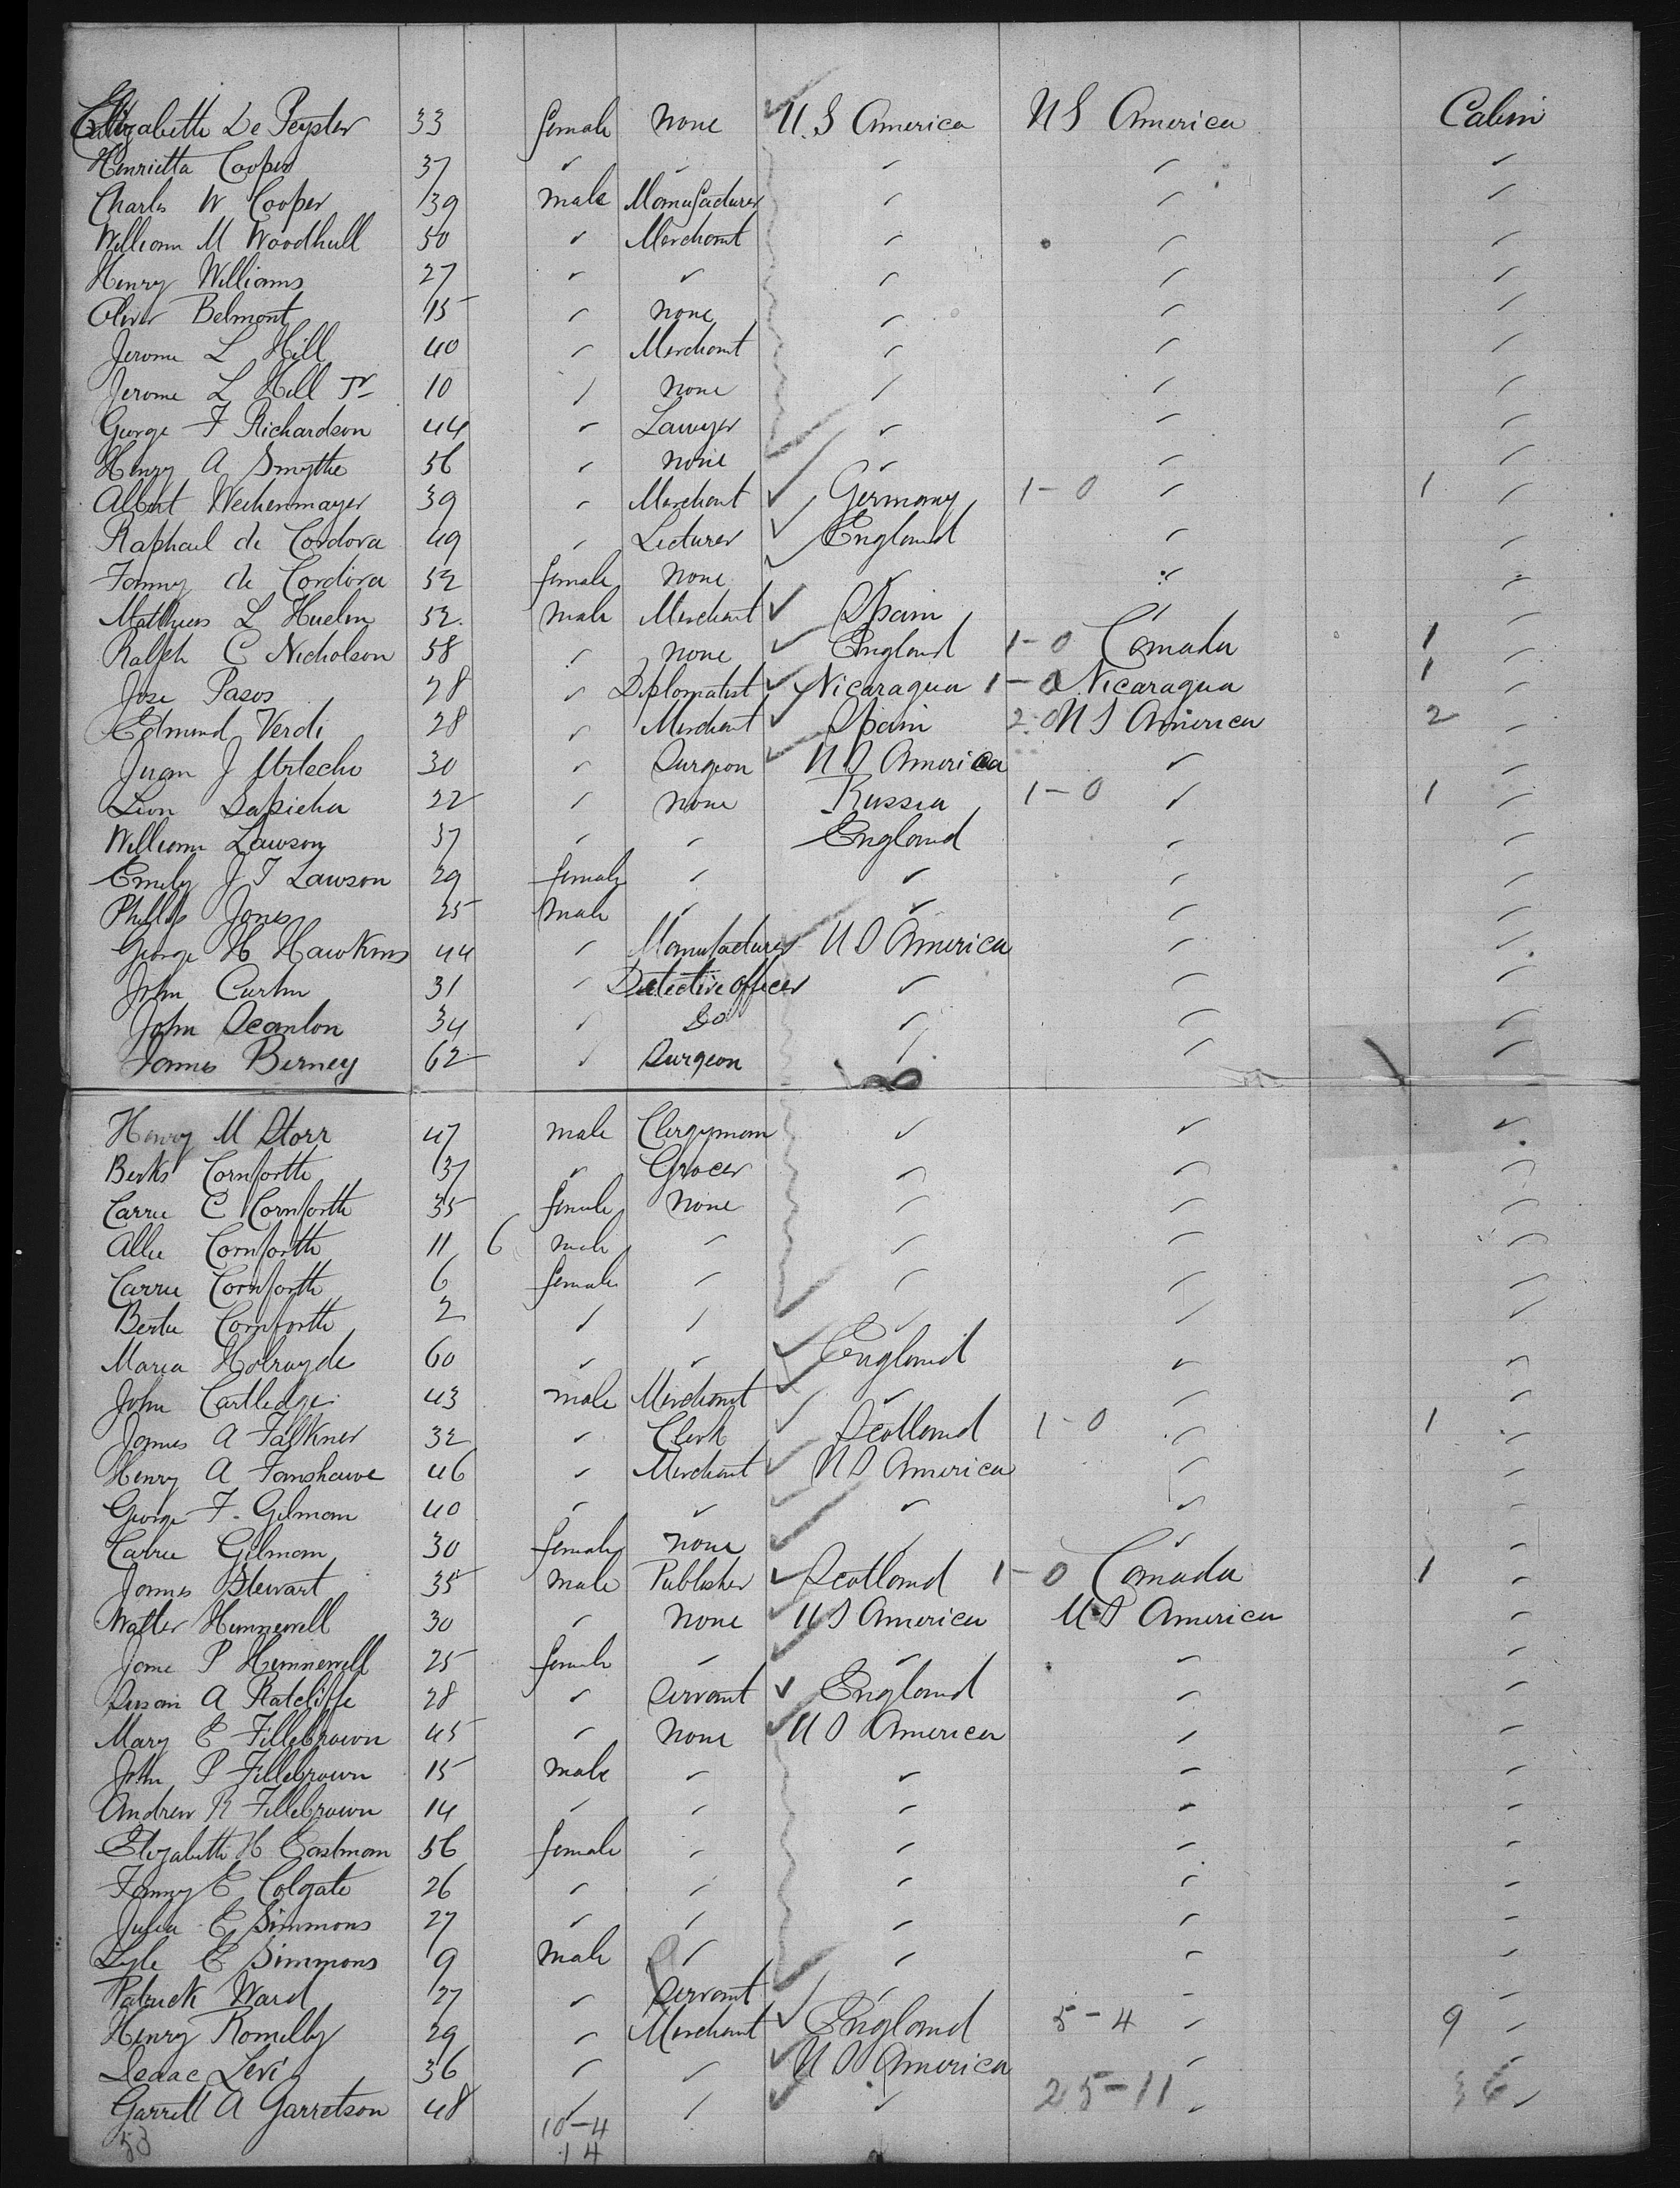 Elizabeth De Peyster 33 female none U.S America US America Cabin
Henrietta Cooper 37 " " " " "
Charles W Cooper 39 male Manufacturer " " "
William M Woodhull 50 " Merchant " " "
Henry Williams 27 " " " " "
Oliver Belmont 15 " none " " "
Jerome L Hill 40 " Merchant " " "
Jerome L Hill Jr 10 " none " " "
George F Richardson 44 " Lawyer " " "
Henry A Smythe 56 " none " " "
Albert Wechenmayer 39 " Merchant Germany 1-0 " 1 "
Raphael de Cordova 49 " Lecturer England " "
Fanny de Cordova 52 female none " " "
Matthews L Huelin 52. male Merchant Spain " "
Ralph C Nicholson 58 " none England 1-0 Canada 1 "
Jose Pasos 28 " Diplomatist Nicaragua 1-0 Nicaragua 1 "
Edmund Verdi 28 " Merchant Spain 2-0 US America 2 "
Juan J Urtecho 30 " Surgeon US America " "
Leon Sapieha 22 " none Russia 1-0 " 1 "
William Lawson 37 " " England " "
Emily J T Lawson 29 female " " " "
Phillip Jones 25 male " " " "
George H Hawkins 44 " Manufacturer US America " "
John Curtin 31 " Detective officer " " "
John Scanlon 34 " Do " " "
James Berney 62 " Surgeon " " "
Henry M Storr 47 male Clergyman " " "
Berks Cornforth 37 " Grocer " " "
Carrie C Cornforth 35 female none " " "
Allie Cornforth 11 6 male " " " "
Carrie Cornforth 6 female " " " "
Berta Cornforth 2 " " " " "
Maria Holroyde 60 " " England " "
John Cartledge 43 male Merchant " " "
James A Falkner 32 " Clerk Scotland 1-0 " 1 "
Henry A Fanshawe 46 " Merchant US America " "
George F. Gilman 40 " " " " "
Carrie Gilman 30 female none " " "
James Stewart 35 male Publisher Scotland 1-0 Canada 1 "
Walter Hunnewell 30 " none US America US America "
Jane P Hunnewell 25 female " " " "
Susan A Ratcliffe 28 " Servant England " "
Mary E Fillebrown 45 " none US America " "
John P Fillebrown 15 male " " " "
Andrew R Fillebrown 14 " " " " "
Elizabeth H Eastman 56 female " " " "
Fanny E Colgate 26 " " " " "
Julia E Simmons 27 " " " " "
Lyle E Simmons 9 male " " " "
Patrick Ward 27 " Servant " " "
Henry Romilly 29 " Merchant England 5-4 " 9 "
Isaac Levi 36 " " US America " "
Garrett A Garretson 48 " " " 25-11 " 36 "
53 10-4
14